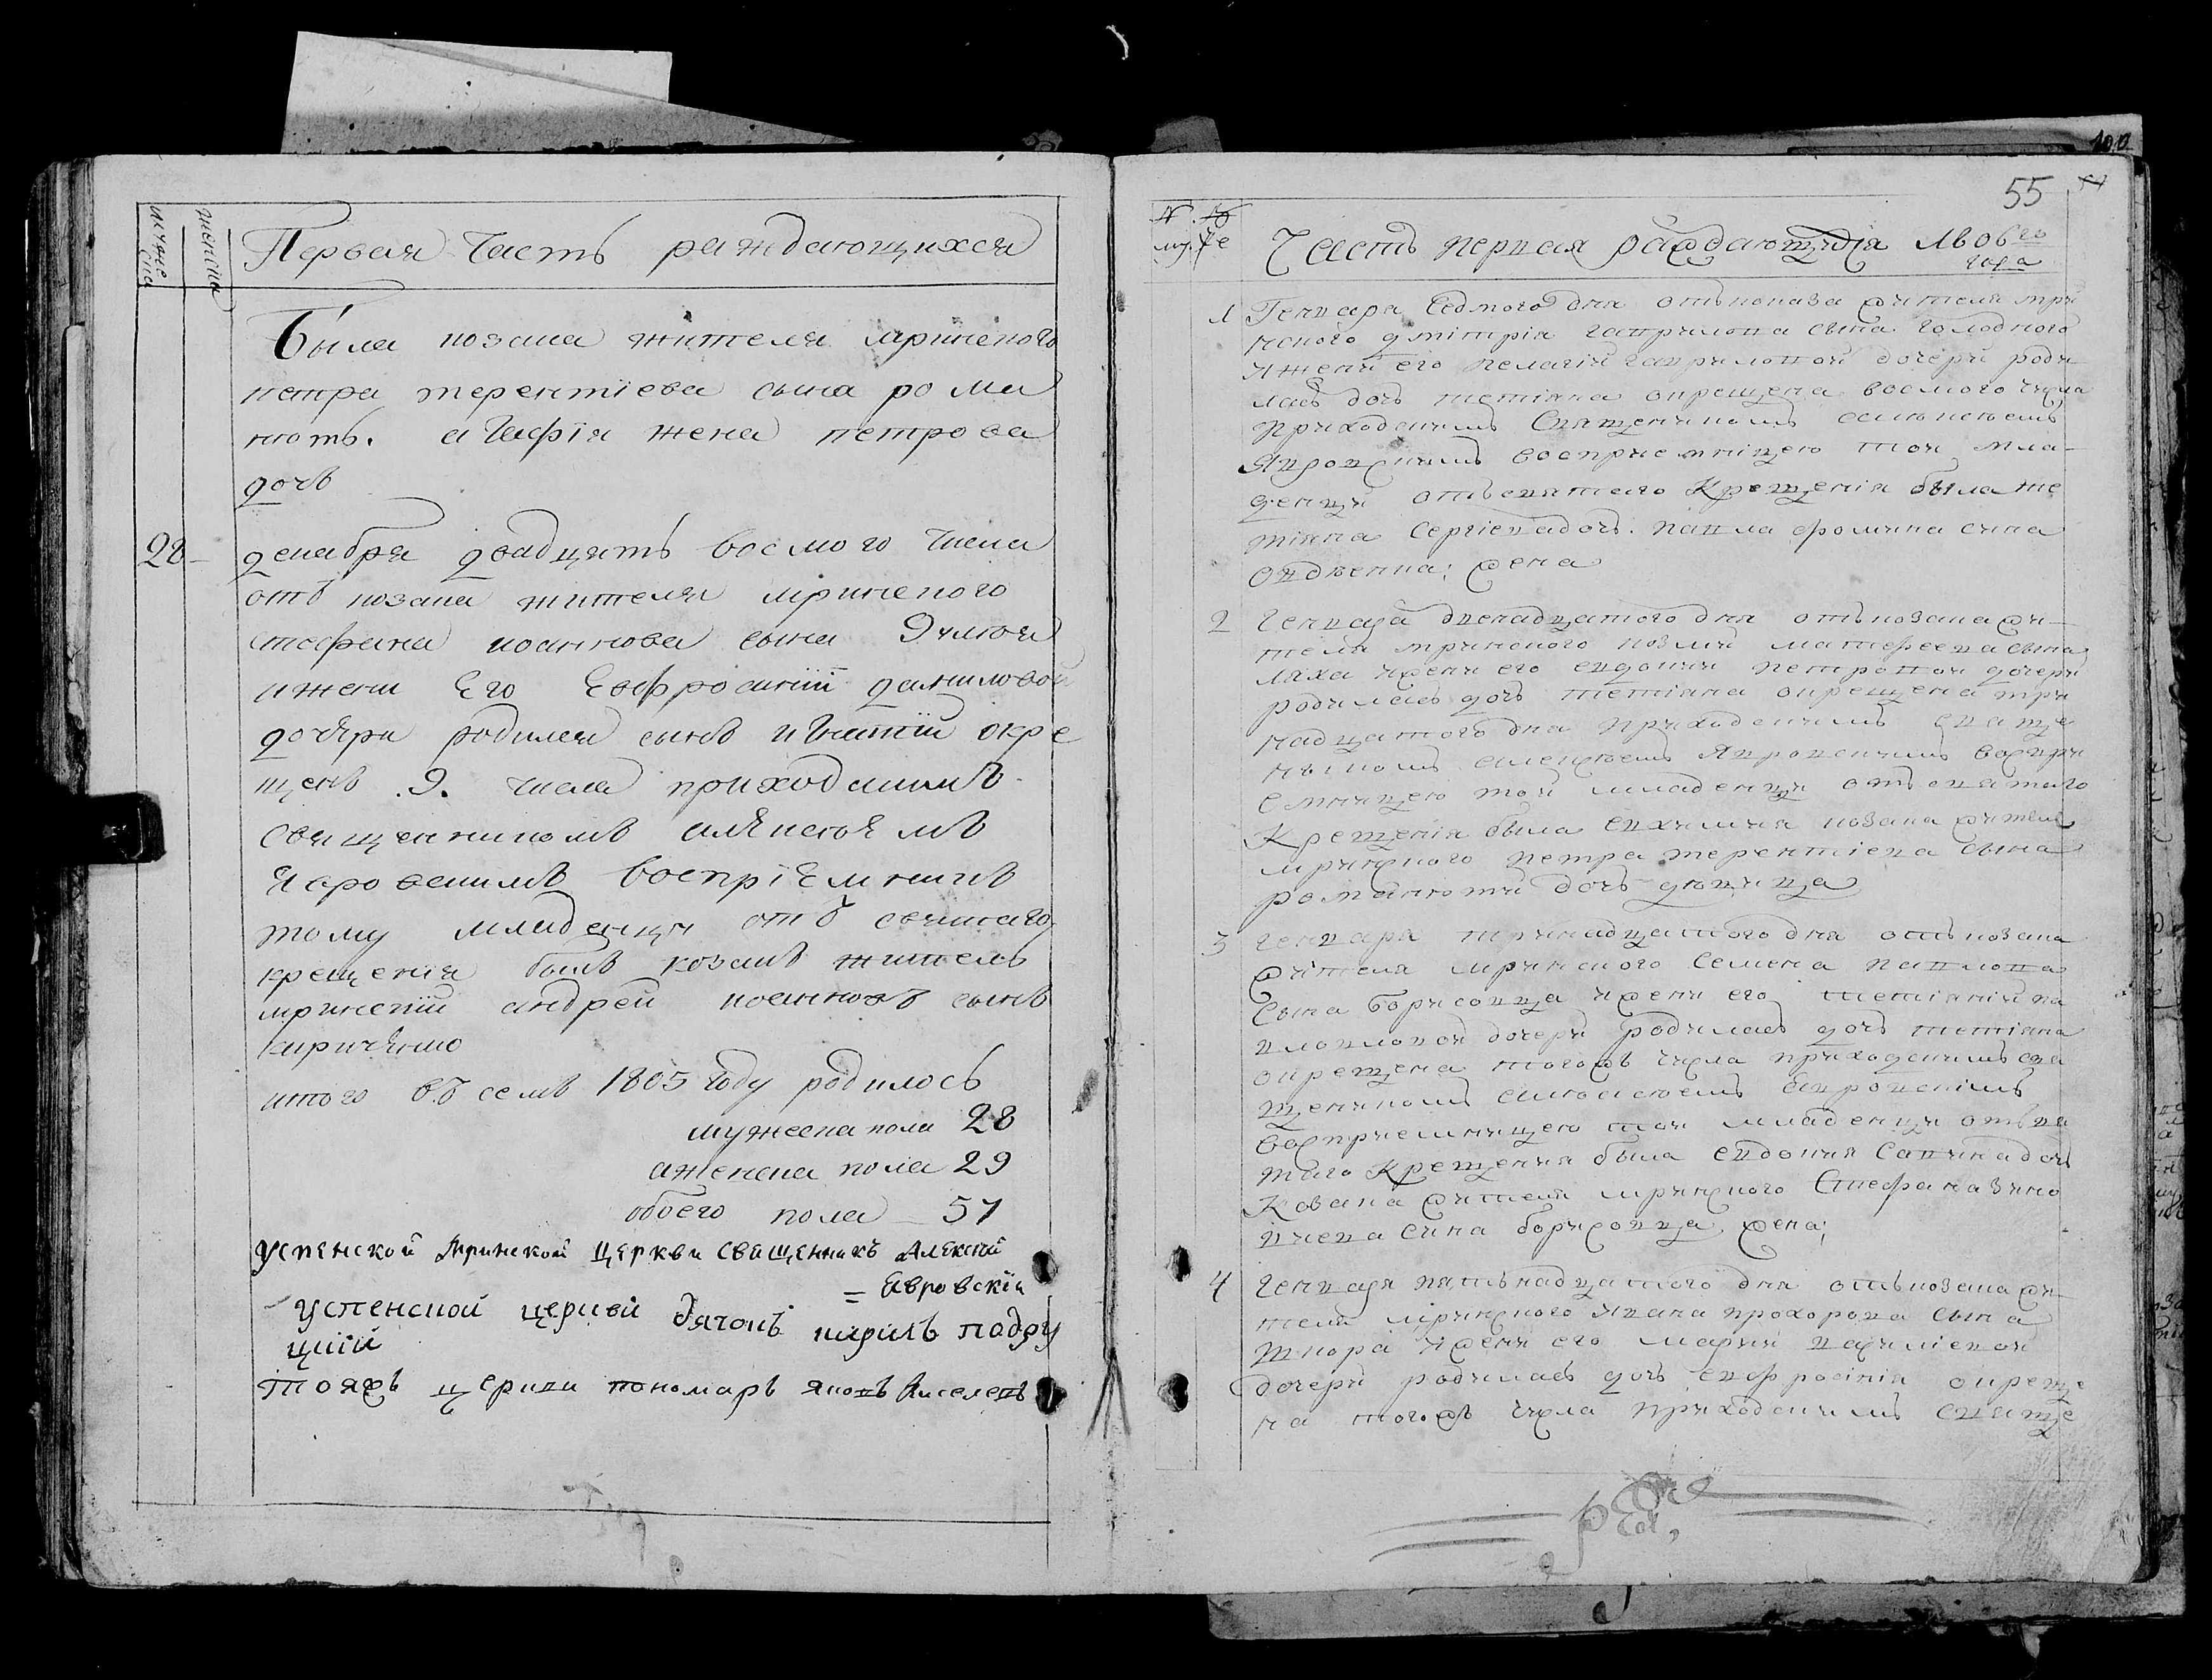 мужеска
женска
Первая Часть раждающихся
Была козака жителя мринского
петра терентїева сына рома
нютъ. агафїя жена петрова
дочь
28
декабря двадцять восмого числа
отъ козака жителя мринского
стефана иоаннова сына
ижени Его Евфросинїи даниловой
дочери родился сынъ игнатїи окре
щенъ .9. числа приходскимъ
священникомъ алеѯѣемъ
Явровскимъ воспрїемникъ
тому младенцу отъ святаго
крещенїя былъ козакъ житель
мринскїи андрей иоанновъ сынъ
киричѣнко
итого въ семъ 1805 году родилось
мужеска пола 28
аженска пола 29
обоего пола 57
Успенской Мринской Церкви Священникъ Алексїй
= Явровскїй
успенской церквѣ дячокъ кирилъ подву
цкїй
тояжъ церкви пономарь яковъ Киселевъ
100
55
№
му. же
Часть первая раждающихся 1806го
года
1 Генваря седмого дня отъ козака жителя мри
нского дмїтрїя гаврилова сына голодного
ижени его пелагїи гавриловой дочери роди
лась дочь тетіяна окрещена восмого числа
приходскимъ Священикомъ алеѯѣемъ
Явровскимъ восприемницею той мла-
денци отъ святаго Крещенїя была те
тіяна сергїева дочь. павла фомина сина
жена
2 генваря двенадцатого дня отъ козака жи-
теля мринского козми матфеева сына
ляха ижени его евдокии петровой дочери
родилась дочь тетіяна окрещена три
надцатого дня приходскимъ свяще
никомъ алеѯѣемъ Явровскимъ воспри
емницею той младенци отъ святаго
Крещенїя была евхимия козака жителя
мринского петра терентїева сына
романюти дочь девица
3 генваря тринадцатого дня отъ козака
жителя мринского семена павлова
сына борисовца ижени его тетіянїи па
вловой дочери родилась дочь тетіяна
окрещена тогожъ числа приходскимъ свя
щеникомъ алеѯѣемъ Явровскимъ
восприемницею той младенци отъ свя
таго Крещения была евдокия Савина дочь
Козака жителя мринского Стефана зино
виева сина борисовца жена;
4 генваря пятьнадцатого дня отъ козака жи
теля мринского ивана прохорова сына
ижени его марии
дочери родилась дочь евфросінїя окреще
на тогожъ числа приходскимъ свяще